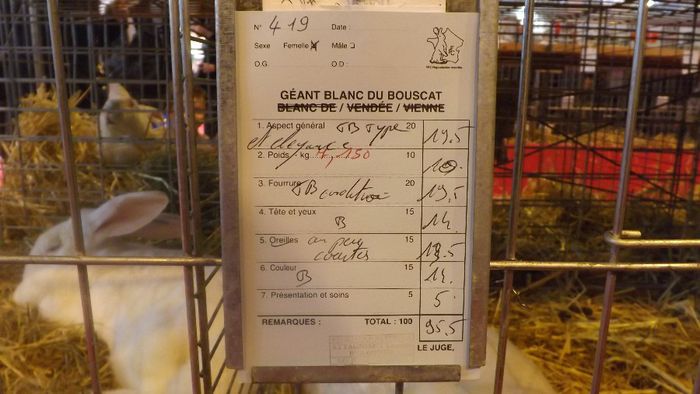 N° 419 Date :
Sexe Femelle ☒ Mâle ☐
O.G. O D :
GÉANT BLANC DU BOUSCAT
BLANC DE / VENDÉE / VIENNE
1. Aspect général TB Type 20 19.5
et élégance
2. Poids kg 150 10 10
3. Fourrure TB condition 20 19,5
4. Tête et yeux B 15 14.
5. Oreilles un peu 15 13.5
courtes
6. Couleur B 15 14.
7. Présentation et soins 5 5.
REMARQUES : TOTAL : 100 95.5
LE JUGE,